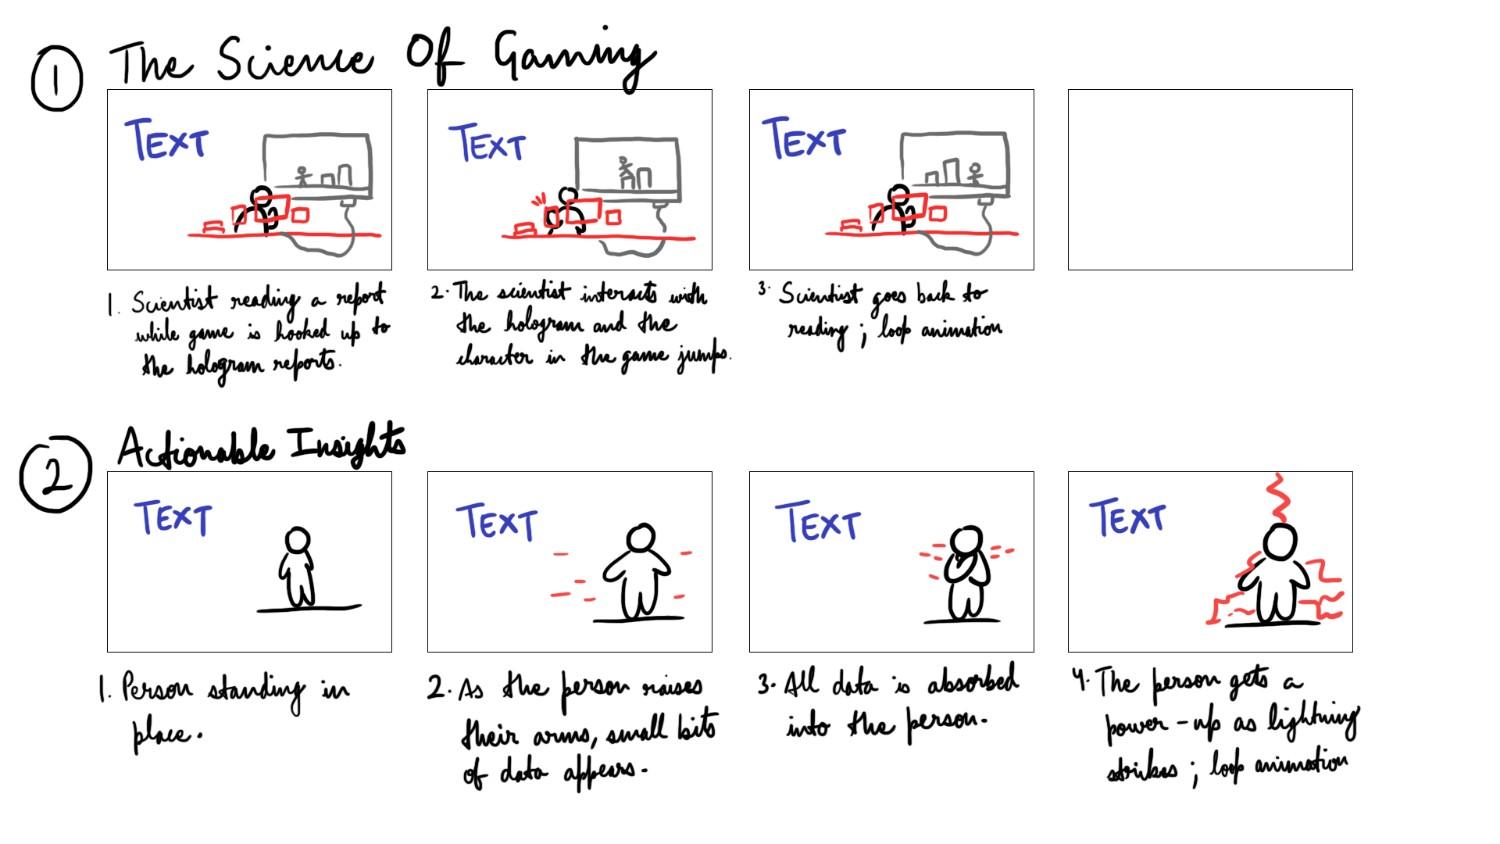 1 The Science Of Gaming
TEXT
TEXT
TEXT
1. Scientist reading a report
while game is hooked up to
the hologram reports.
2. The scientist interacts with
the hologram and the
character in the game jumps.
3. Scientist goes back to
reading; loop animation
2 Actionable Insights
TEXT
TEXT
TEXT
TEXT
1. Person standing in
place.
2. As the person raises
their arms, small bits
of data appears.
3. All data is absorbed
into the person.
4. The person gets a
power-up as lightning
strikes; loop animation